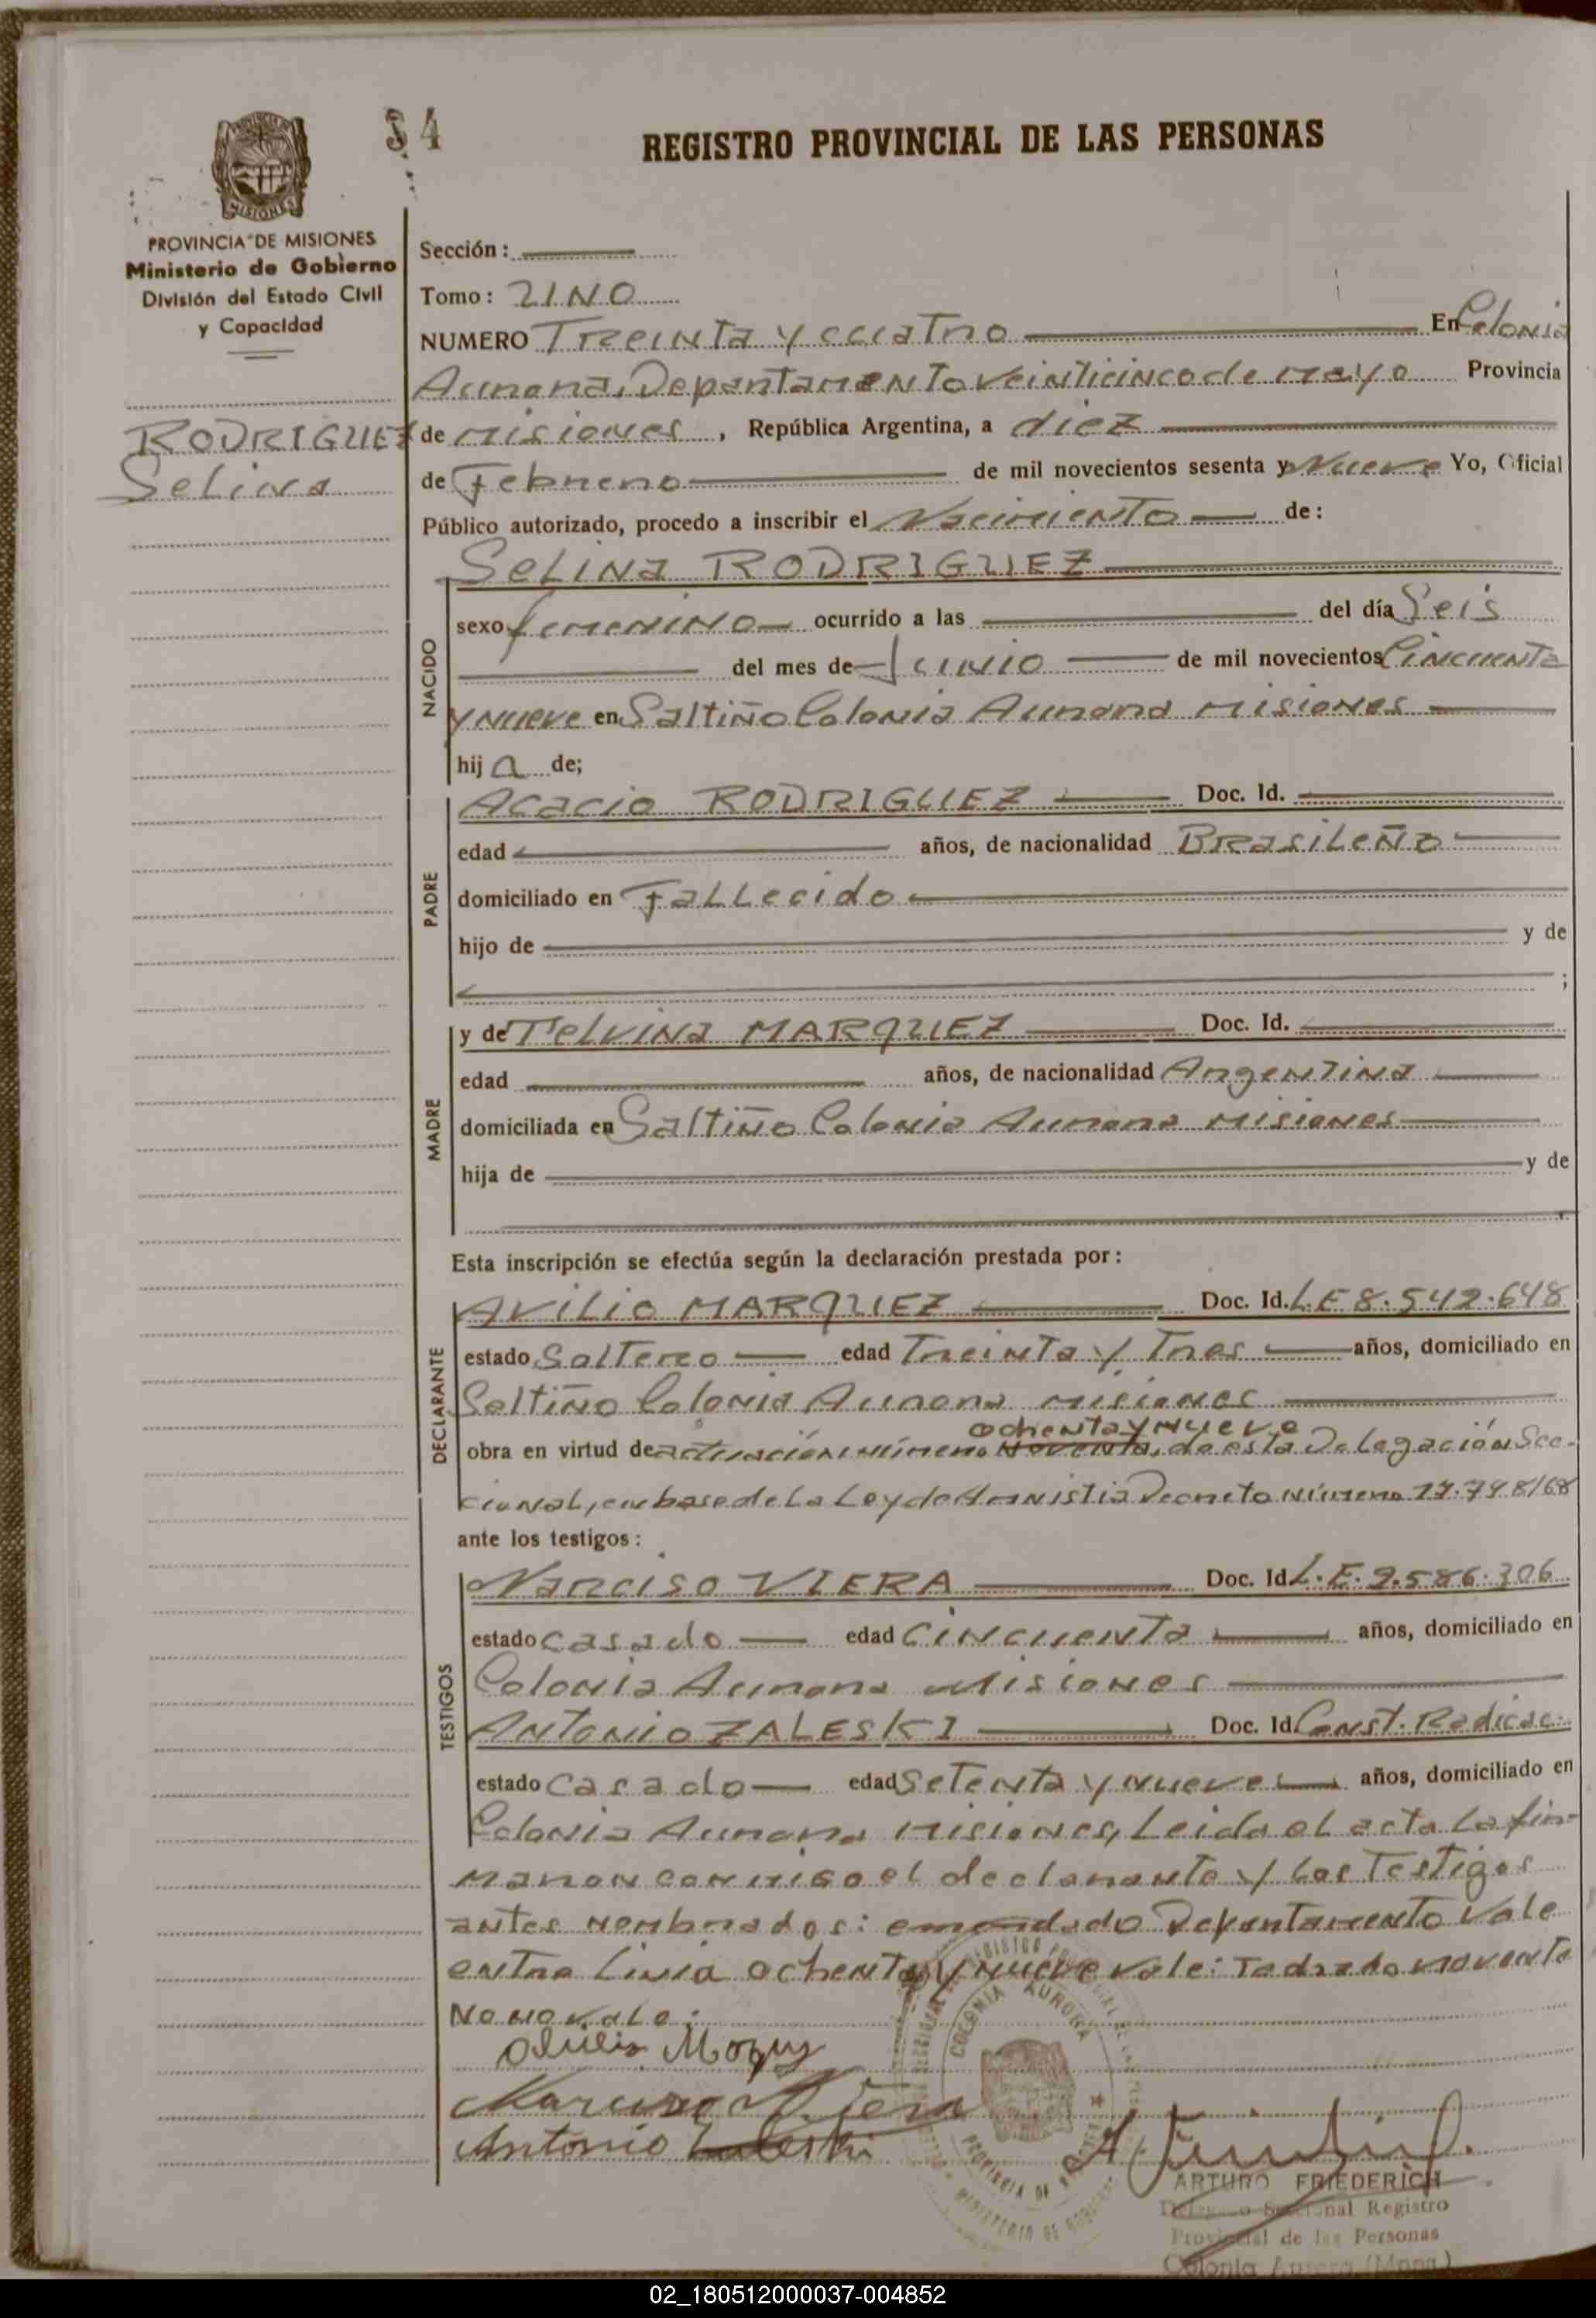 34
REGISTRO PROVINCIAL DE LAS PERSONAS
MISIONES
PROVINCIA DE MISIONES
Ministerio de Gobierno
División del Estado Civil
y Capacidad
RODRIGUEZ
Selina
Sección:
Tomo: UNO
NUMERO Treinta y cuatro En Colonia
Aurora, Departamento Veinticinco de mayo Provincia
de misiones, República Argentina, a diez
de Febrero de mil novecientos sesenta y Nueve Yo, Oficial
Público autorizado, procedo a inscribir el Nacimiento de:
NACIDO
Selina RODRIGUEZ
sexo femenino ocurrido a las del día Seis
del mes de Junio de mil novecientos Cincuenta
y nueve en Saltiño Colonia Aurora misiones
hija de;
PADRE
Acacio RODRIGUEZ Doc. Id.
edad años, de nacionalidad Brasileño
domiciliado en Fallecido
hijo de y de
;
MADRE
y de Telvina MARQUEZ Doc. Id.
edad años, de nacionalidad Argentina
domiciliada en Saltiño Colonia Aurora misiones
hija de y de
Esta inscripción se efectúa según la declaración prestada por:
DECLARANTE
Avilio MARQUEZ Doc. Id. L.E 8.542.648
estado Soltero edad Treinta y Tres años, domiciliado en
Saltiño Colonia Aurora misiones
ochenta y nueve
obra en virtud de actuación número noventa, de esta Delegación Sec-
cional, en base de la Ley de Amnistia Decreto número 17.798/68
ante los testigos:
TESTIGOS
Narciso VIERA Doc. Id L.E. 9.586.306
estado casado edad Cincuenta años, domiciliado en
Colonia Aurora Misiones
Antonio ZALESKI Doc. Id Const. Radicac.
estado Casado edad Setenta y nueve años, domiciliado en
Colonia Aurora misiones, Leida el acta la fir-
maron conmigo el declarante y los Testigos
antes nombrados: emendado Departamento Vale
entre Linia ochenta y nueve vale: Tadrado noventa
No no vale:
Narciso Viera
Antonio Zaleski
COLONIA AURORA
ARTURO FRIEDERICH
Delegado Seccional Registro
Provincial de las Personas
Colonia Aurora (Mnes.)
02_180512000037-004852